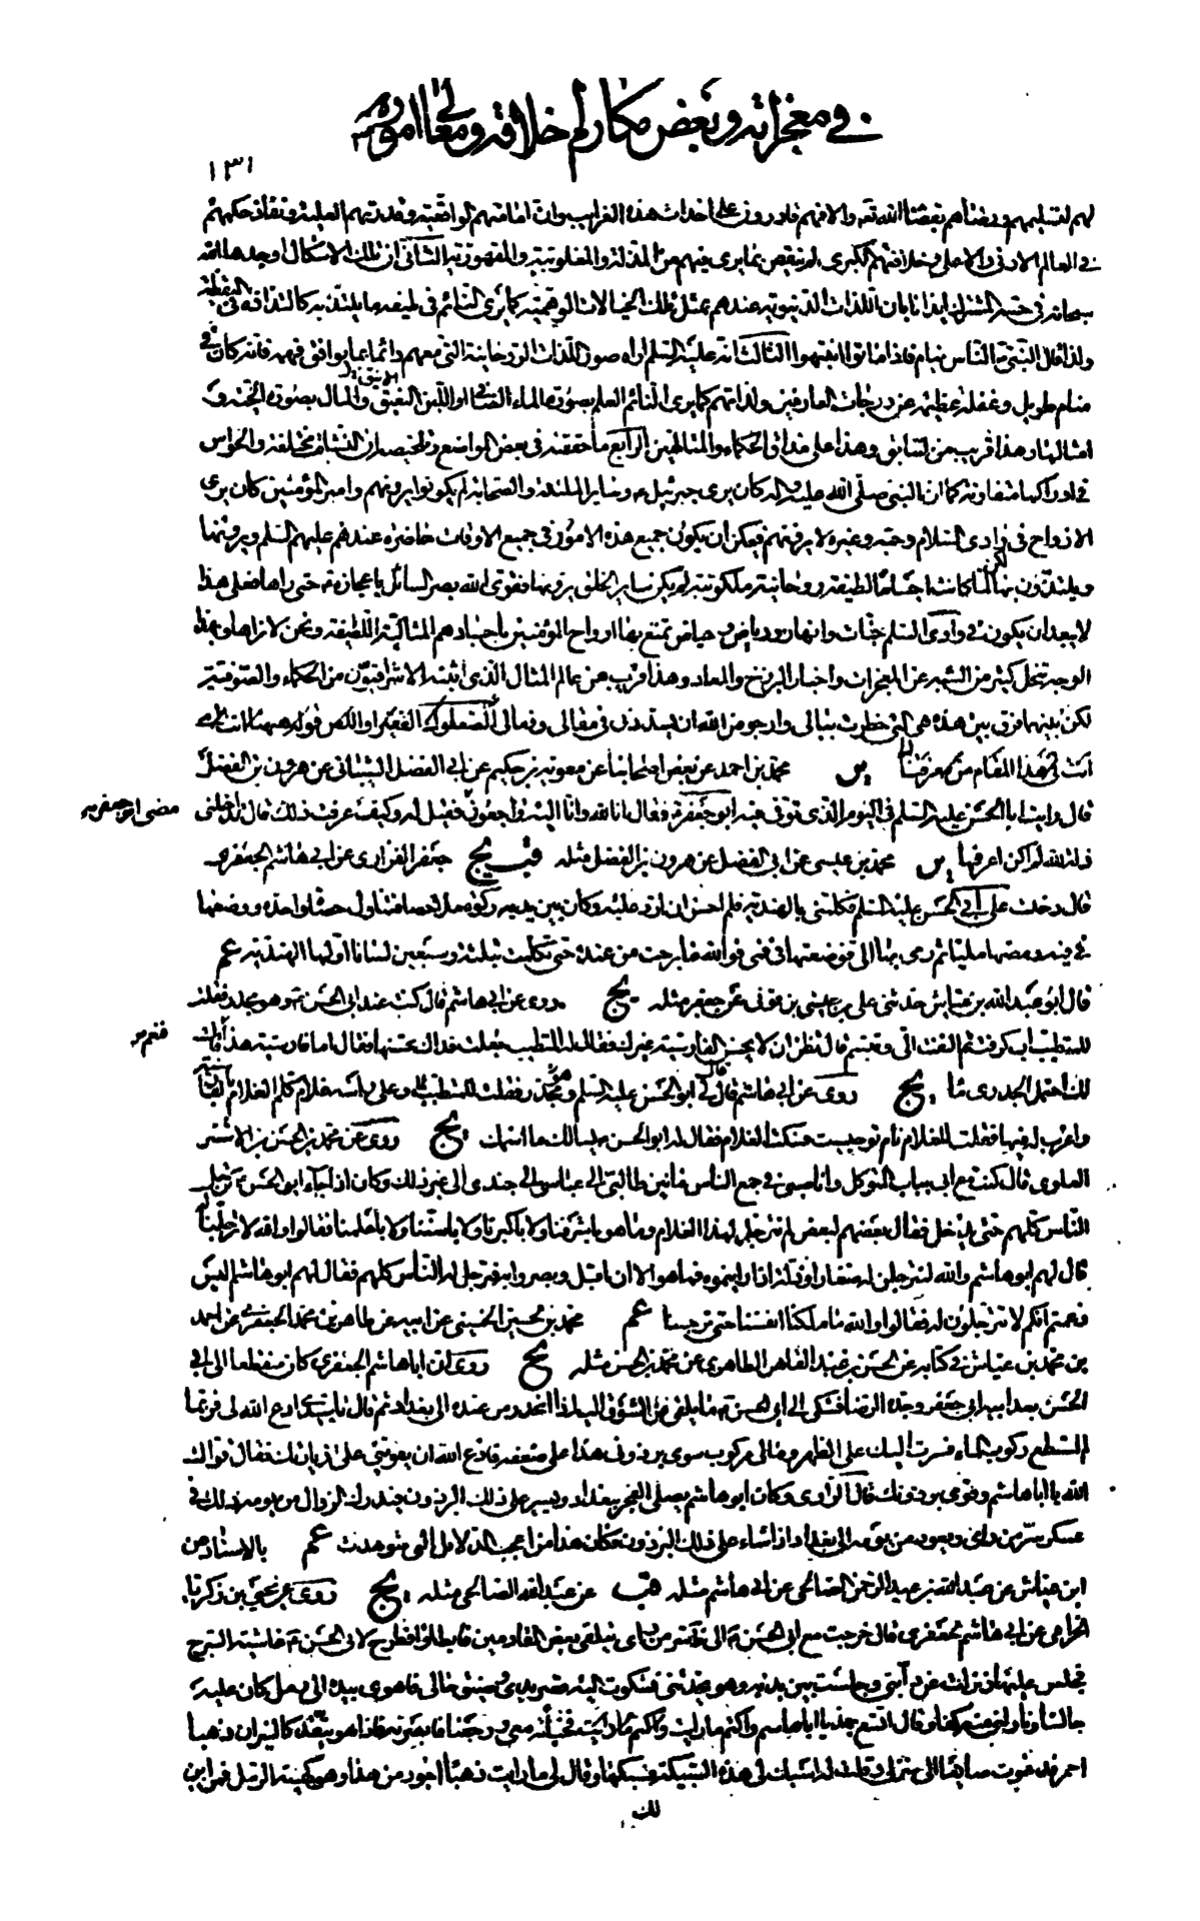 في معجزاته وبعض مكارم اخلاقه ومعالي اموره
١٣١
لهم لتسليمهم ورضاهم بقضاء الله تعالى والا فهم قادرون على احداث هذه الغرايب وان امامتهم الواقعية وقدرتهم العلية ونفاذ حكمهم
في العالم الادنى والاعلى وخلافتهم الكبرى لم تنقص بما يرى فيهم من المذلة والمغلوبية والمقهورية الثاني ان تلك الاشكال اوجدها الله
سبحانه في حسه المشترك ايذانا بان اللذات الدنيوية عندهم بمثل تلك الخيالات الوهمية كما يرى النائم في طيفه ما يلتذ به كالتذاذه في اليقظة
ولذا قال النبي ص الناس نيام فاذا ماتوا انتبهوا الثالث انه عليه السلم اراه صور اللذات الروحانية التي معهم دائما بما يوافق فهمه فانه كان في
منام طويل وغفلة عظيمة عن درجات العارفين ولذاتهم كما يرى النائم العلم بصورة الماء الصافي او اللبن اليقق والمال بصورة العذرة و
امثالها وهذا قريب من السابق وهذا على مذاق الحكماء والمتألهين الرابع ما حققته في بعض المواضع وتلخيصه ان النشئات مختلفة والحواس
في ادراكها متفاوتة كما ان النبي صلى الله عليه واله كان يرى جبرئيل ع وساير الملئكة والصحابة لم يكونوا يرونهم وامير المؤمنين كان يرى
الارواح في وادي السلام وحبة وغيره لا يرونهم فيمكن ان يكون جميع هذه الامور في جميع الاوقات حاضرة عندهم عليهم السلم ويرونها
ويلتذون بها لكن لما كانت اجساما لطيفة روحانية ملكوتية لم يكن ساير الخلق يرونها فقوى الله بصر السائل باعجازه ع حتى راها فعلى هذا
لا يبعد ان يكون في وادي السلم جنات وانهار ورياض وحياض تتمتع بها ارواح المؤمنين باجسادهم المثالية اللطيفة ونحن لا نراها وبهذا
الوجه تنحل كثير من الشبه عن المعجزات واخبار البرزخ والمعاد وهذا قريب من عالم المثال الذي اثبته الاشراقيون من الحكماء والصوفية
لكن بينهما فرق بين هذه هي التي خطرت ببالي وارجو من الله ان يسددني في مقالي وفعالي الصعلوك الفقير او اللص قوله ههنا انت اي
انت في هذا المقام من معرفتنا ير محمد بن احمد عن بعض اصحابنا عن معوية بن حكيم عن ابي الفضل الشيباني عن هرون بن الفضل
قال رايت ابا الحسن عليه السلم في اليوم الذي توفي فيه ابو جعفر ع فقال انا لله وانا اليه راجعون فقيل له وكيف عرفت ذلك قال تداخلني
مضى ابو جعفر
ذلة لله لم اكن اعرفها ير محمد بن عيسى عن ابي الفضل عن هرون بن الفضل مثله قب يج جعفر الفزاري عن ابي هاشم الجعفري
قال دخلت على ابي الحسن عليه السلم فكلمني بالهندية فلم احسن ان ارد عليه وكان بين يديه ركوة ملأ حصا فتناول حصاة واحدة ووضعها
في فيه ومصها مليا ثم رمى بها الي فوضعتها في فمي فوالله ما برحت من عنده حتى تكلمت بثلثة وسبعين لسانا اولها الهندية عم
قال ابو عبد الله بن عياش حدثني علي بن حبشي بن قوني عن جعفر مثله يج روى عن ابي هاشم قال كنت عند ابي الحسن ع وهو مجدر فقلت
للمتطبب آب گرفت ثم التفت الي وتبسم فقال تظن ان لا يحسن الفارسية غيرك فقال له المتطبب جعلت فداك تحسنها فقال اما فارسية هذا فنعم قال
لك احتمل الجدري ماء يج روى عن ابي هاشم قال قال لي ابو الحسن عليه السلم وعلى راسه غلام كلم الغلام بالفارسية
واعرب له فيها فقلت للغلام نام تو چيست فسكت الغلام فقال له ابو الحسن ع يسالك ما اسمك يج روى عن محمد بن الحسن بن الاشتر
العلوي قال كنت مع ابي بباب المتوكل وانا صبي في جمع الناس ما بين طالبي الى عباسي الى جندي الى غير ذلك وكان اذا جاء ابو الحسن ع ترجل
الناس كلهم حتى يدخل فقال بعضهم لبعض لم نترجل لهذا الغلام وما هو باشرفنا ولا باكبرنا ولا باسننا ولا باعلمنا فقالوا والله لا ترجلنا له
قال لهم ابو هاشم والله لتترجلن له صغارا وذلة اذا رايتموه فما هو الا ان اقبل وبصروا به فترجل له الناس كلهم فقال لهم ابو هاشم اليس
زعمتم انكم لا تترجلون له فقالوا والله ما ملكنا انفسنا حتى ترجلنا عم محمد بن الحسين الحسيني عن ابيه عن طاهر بن محمد الجعفري عن احمد
بن محمد بن عياش في كتابه عن الحسن بن عبد القاهر الطاهري عن محمد بن الحسن مثله يج روى ان ابا هاشم الجعفري كان منقطعا الى ابي
الحسن بعد ابيه ابي جعفر وجده الرضا فشكى الى ابي الحسن ع ما يلقى من الشوق اليه اذا انحدر من عنده الى بغداد ثم قال يا سيدي ادع الله لي فربما
لم استطع ركوب الماء فسرت اليك على الظهر ومالي مركوب سوى برذوني هذا على ضعفه فادع الله ان يقويني على زيارتك فقال قواك
الله يا ابا هاشم وقوى برذونك قال الراوي وكان ابو هاشم يصلي الفجر ببغداد ويسير على ذلك البرذون فيدرك الزوال من يومه ذلك في
عسكر سر من راى ويعود من يومه الى بغداد اذا شاء على ذلك البرذون فكان هذا من اعجب الدلايل التي شوهدت عم بالاسناد عن
ابن عياش عن عبد الله بن عبد الرحمن الصالحي عن ابي هاشم مثله قب عن عبد الله الصالحي مثله يج روى عن يحيى بن زكريا
الخزاعي عن ابي هاشم الجعفري قال خرجت مع ابي الحسن ع الى ظاهر سر من راى نتلقى بعض القادمين فابطاوا فطرح لابي الحسن ع غاشية السرج
فجلس عليها ونزلت عن دابتي وجلست بين يديه وهو يحدثني فشكوت اليه قصر يدي وضيق حالي فاهوى بيده الى رمل كان عليه
جالسا وناولني منه كفا وقال اتسع بهذا يا ابا هاشم واكتم ما رايت فخباته معي ورجعنا فابصرته فاذا هو يتقد كالنيران ذهبا
احمر فدعوت صائغا الى منزلي وقلت له اسبك لي هذه السبيكة فسبكها وقال لي ما رايت ذهبا اجود من هذا وهو كهيئة الرمل فمن اين
لك